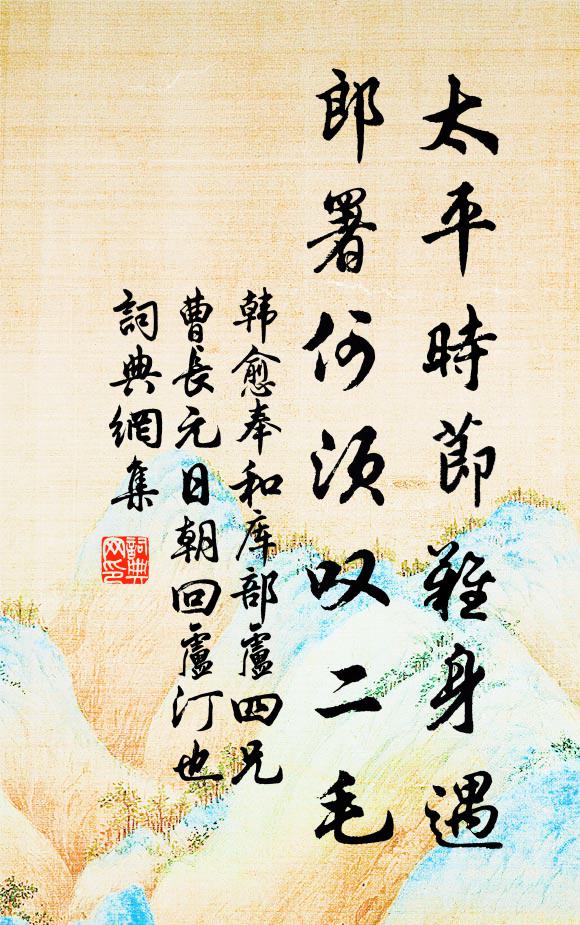 太平時節難身遇
郎署何須叹二毛
韩愈奉和库部盧四兄
曹長元日朝回盧汀也
詞典網集
詞典
网印